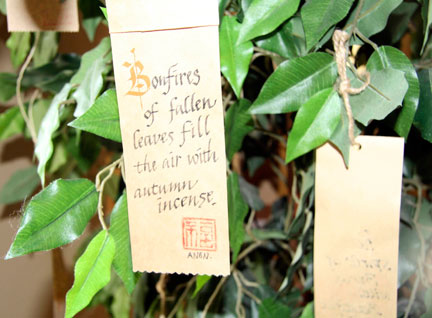 Bonfires
of fallen
leaves fill
the air with
autumn
incense.
福
ANON.